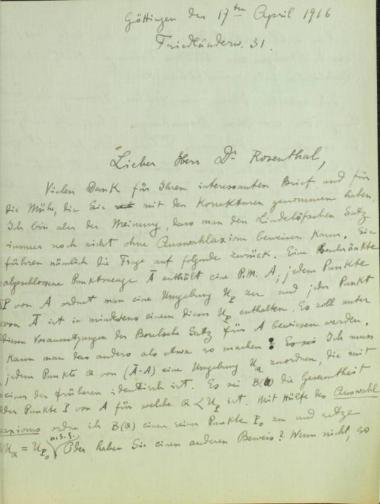 Göttingen den 17ten April 1916
Friedländerw. 31.
Lieber Herr Dr Rosenthal,
Vielen Dank für Ihren interessanten Brief und für
die Mühe, die Sie mit den Korrekturen genommen haben.
Ich bin aber der Meinung, dass man den Lindelöfschen Satz
immer noch nicht ohne Auswahlaxiom beweisen kann. Sie
führen nämlich die Frage auf folgende zurück. Eine beschränkte
abgeschlossene Punktmenge Ā enthält eine P.M. A; jedem Punkte
P von A ordnet man eine Umgebung U_P zu und jeder Punkt
von Ā ist in mindestens einem dieser U_P enthalten. Es soll unter
diesen Voraussetzungen der Borelsche Satz für A bewiesen werden.
Kann man das anders als etwa so machen? Ich muss
jedem Punkte α von (Ā-A) eine Umgebung U_α zuordnen, die mit
einer der früheren identisch ist. Es sei B(α) die Gesamtheit
der Punkte P von A für welche α < U_P ist. Mit Hülfe des Auswahl
axioms ordne ich B(α) einen seiner Punkte P_0 zu und setze
U_α = U_P0 Oder haben Sie einen anderen Beweis? Wenn nicht, so